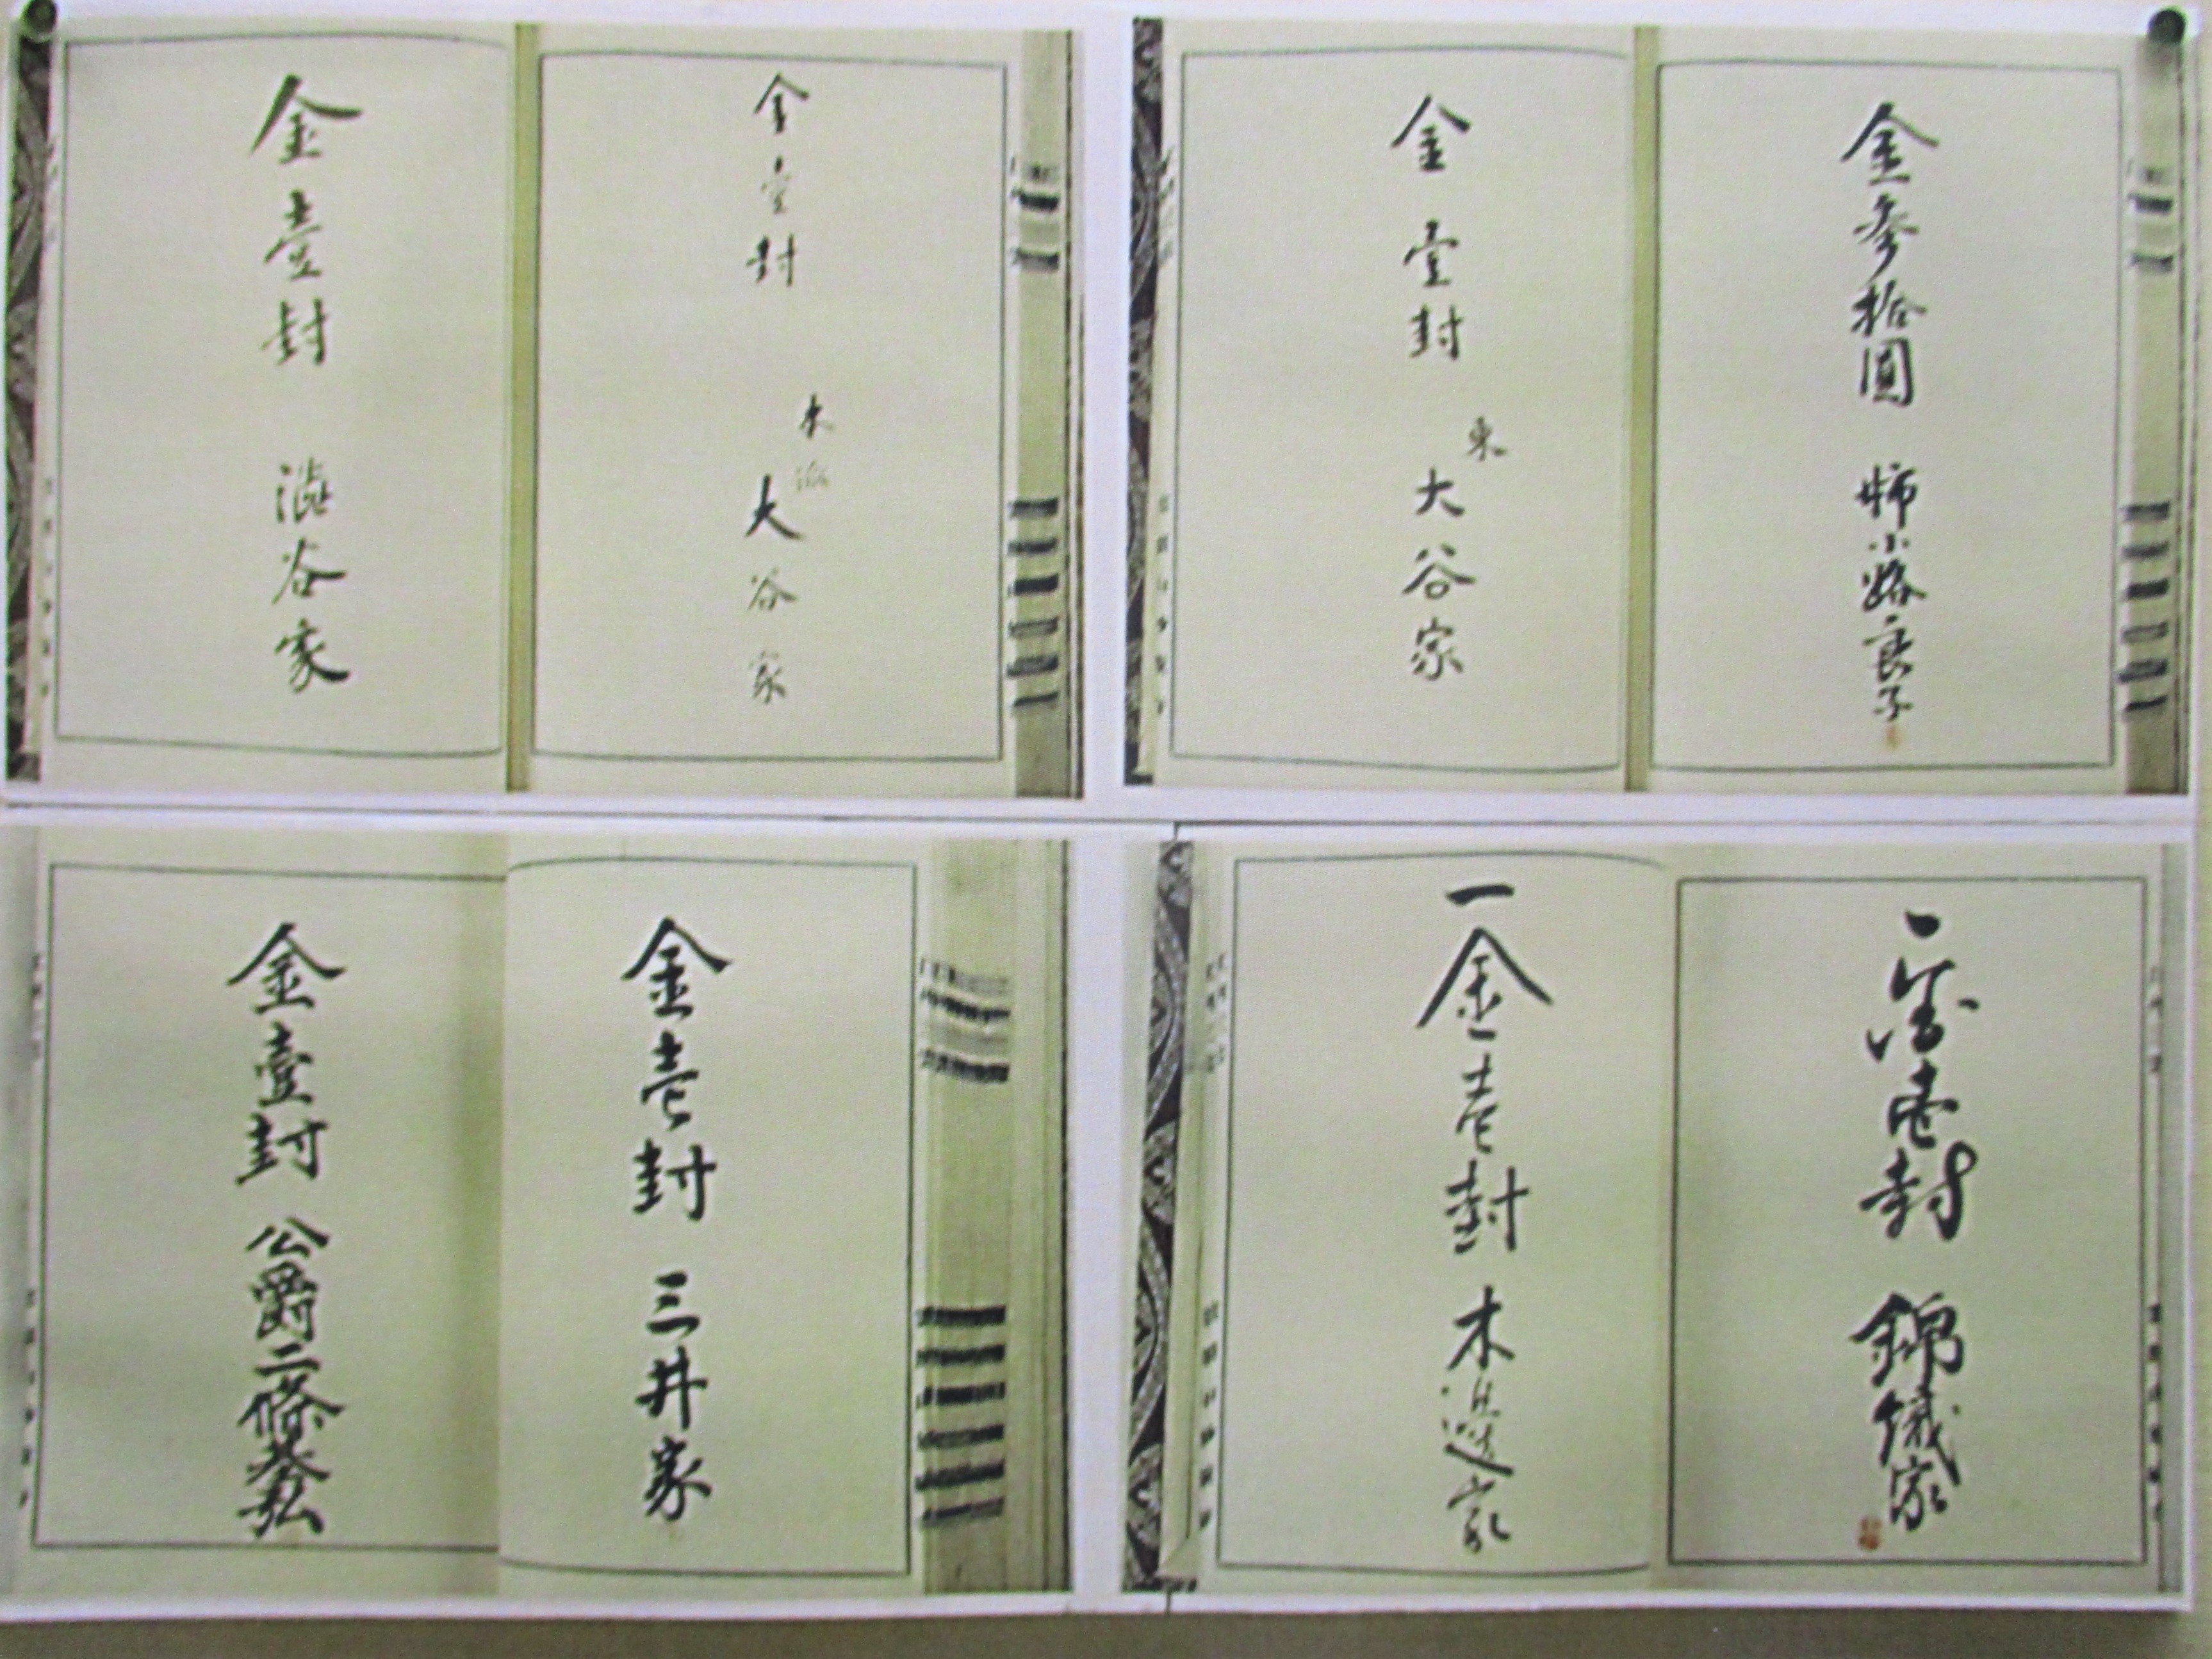 金参拾圓 姉小路良子
金壹封 東 大谷家
金壹封 本派 大谷家
金壹封 澁谷家
一金壱封 錦織家
一金壱封 木邊家
金壱封 三井家
金壹封 公爵二條基弘